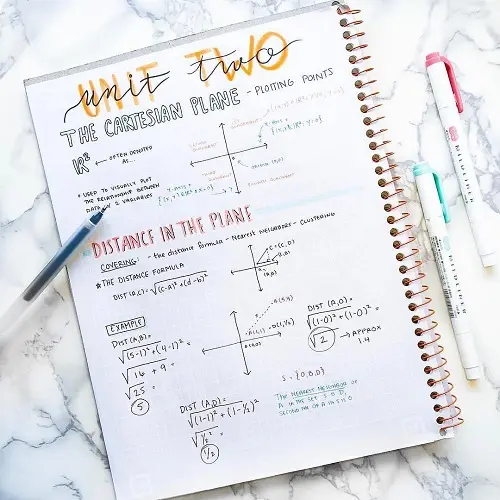 UNIT TWO
unit two
THE CARTESIAN PLANE - PLOTTING POINTS
OFTEN DENOTED
AS...
* USED TO VISUALLY PLOT
THE RELATIONSHIP BETWEEN
DATA IN 2 VARIABLES
DISTANCE IN THE PLANE
COVERING: - the distance formula - Nearest neighbors - clustering
* THE DISTANCE FORMULA
DIST (A,C) = √(c-a)² + (d-b)²
EXAMPLE
DIST (A,B) =
√(5-1)² + (4-1)² =
√16 + 9 =
√25 =
5
DIST (A,O) =
√(1-0)² + (1-0)² =
√2 → APPROX
1.4
DIST (A,D) =
√(1-1)² + (1-½)²
=
½
S = {O,B,D}
THE NEAREST NEIGHBOR OF
A IN THE SET S IS D,
MILDLINER